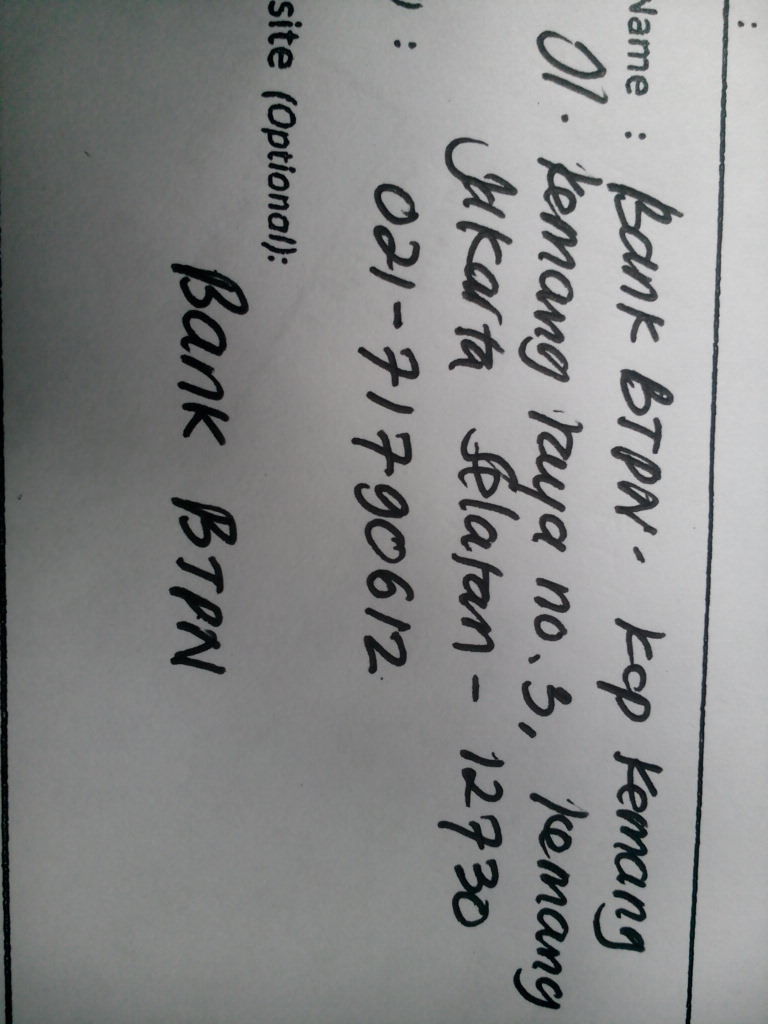 Name : Bank BTPN. Kcp Kemang
Jl. Kemang raya no. 3, Kemang
Jakarta Selatan - 12730
: 021-71790612
site (Optional):
Bank BTPN